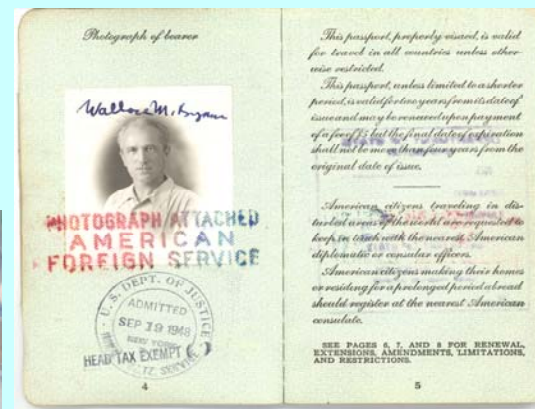 Photograph of bearer
Wallace M.
PHOTOGRAPH ATTACHED
AMERICAN
FOREIGN SERVICE
U.S. DEPT. OF JUSTICE
ADMITTED
SEP 19 1948
NEW YORK
HEAD TAX EXEMPT ( )
SERVICE
4
This passport, properly visaed, is valid
for travel in all countries unless other-
wise restricted.
This passport, unless limited to a shorter
period, is valid for two years from its date of
issue and may be renewed upon payment
of a fee of $5 but the final date of expiration
shall not be more than four years from the
original date of issue.
American citizens traveling in dis-
turbed areas of the world are requested to
keep in touch with the nearest American
diplomatic or consular officers.
American citizens making their homes
or residing for a prolonged period abroad
should register at the nearest American
consulate.
SEE PAGES 6, 7, AND 8 FOR RENEWAL,
EXTENSIONS, AMENDMENTS, LIMITATIONS,
AND RESTRICTIONS.
5